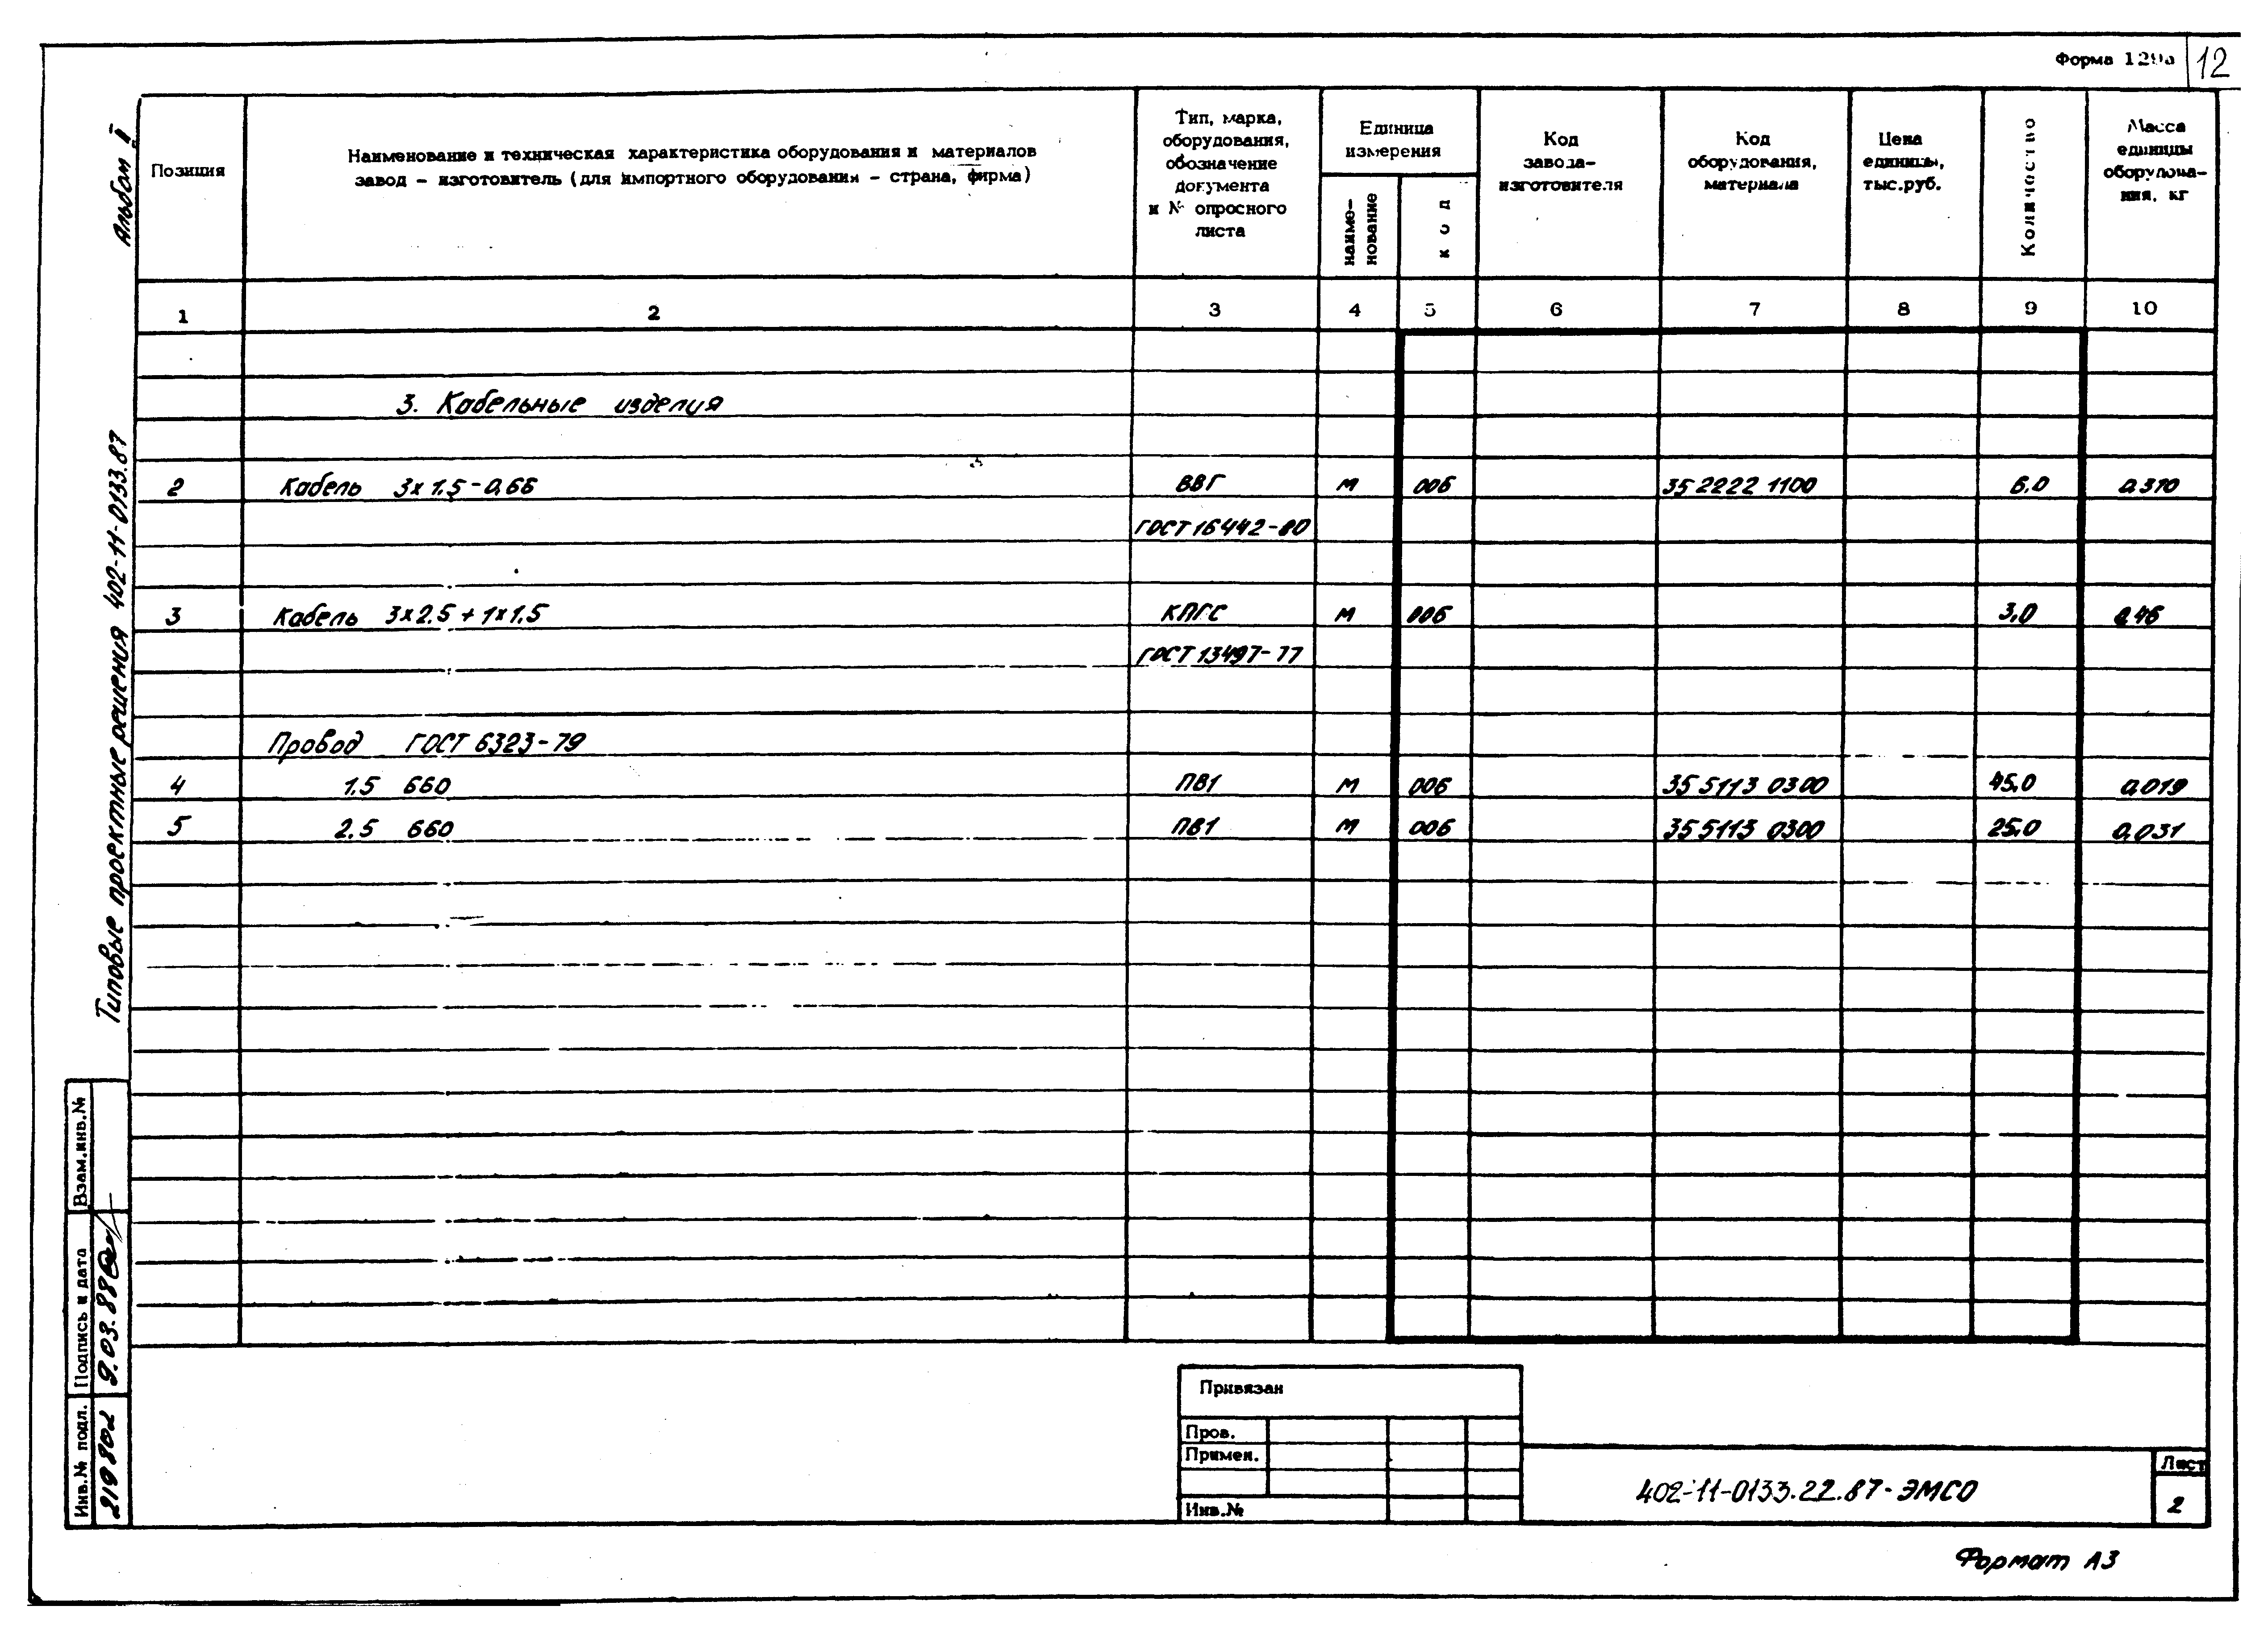 Форма 129а 12
Альбом I
Типовые проектные решения 402-11-0133.87
Позиция
Наименование и техническая характеристика оборудования и материалов
завод – изготовитель (для импортного оборудования – страна, фирма)
Тип, марка,
оборудования,
обозначение
документа
и № опросного
листа
Единица
измерения
наиме-
нование
код
Код
завода-
изготовителя
Код
оборудования,
материала
Цена
единицы,
тыс.руб.
Количество
Масса
единицы
оборудова-
ния, кг
1 2 3 4 5 6 7 8 9 10
3. Кабельные изделия
2 Кабель 3х1,5-0,66 ВВГ м 006 35 2222 1100 6,0 0,310
ГОСТ 16442-80
3 Кабель 3х2,5 + 1х1,5 КПГС м 006 3,0 0,46
ГОСТ 13497-77
Провод ГОСТ 6323-79
4 1,5 660 ПВ1 м 006 35 5113 0300 45,0 0,019
5 2,5 660 ПВ1 м 006 35 5113 0300 25,0 0,031
Взам.инв.№
Подпись и дата 9.03.88
Инв.№ подл.
Привязан
Пров.
Примен.
Инв.№
402-11-0133.22.87-ЭМСО
Лист
2
Формат А3